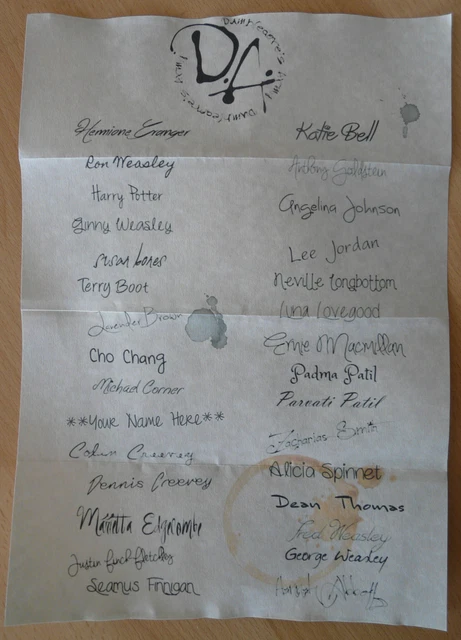 D.A.
Hermione Granger
Ron Weasley
Harry Potter
Ginny Weasley
Susan Bones
Terry Boot
Lavender Brown
Cho Chang
Michael Corner
**Your Name Here**
Colin Creevey
Dennis Creevey
Marietta Edgcombe
Justin Finch-Fletchley
Seamus Finnigan
Katie Bell
Anthony Goldstein
Angelina Johnson
Lee Jordan
Neville Longbottom
Luna Lovegood
Ernie Macmillan
Padma Patil
Parvati Patil
Zacharias Smith
Alicia Spinnet
Dean Thomas
Fred Weasley
George Weasley
Hannah Abbott